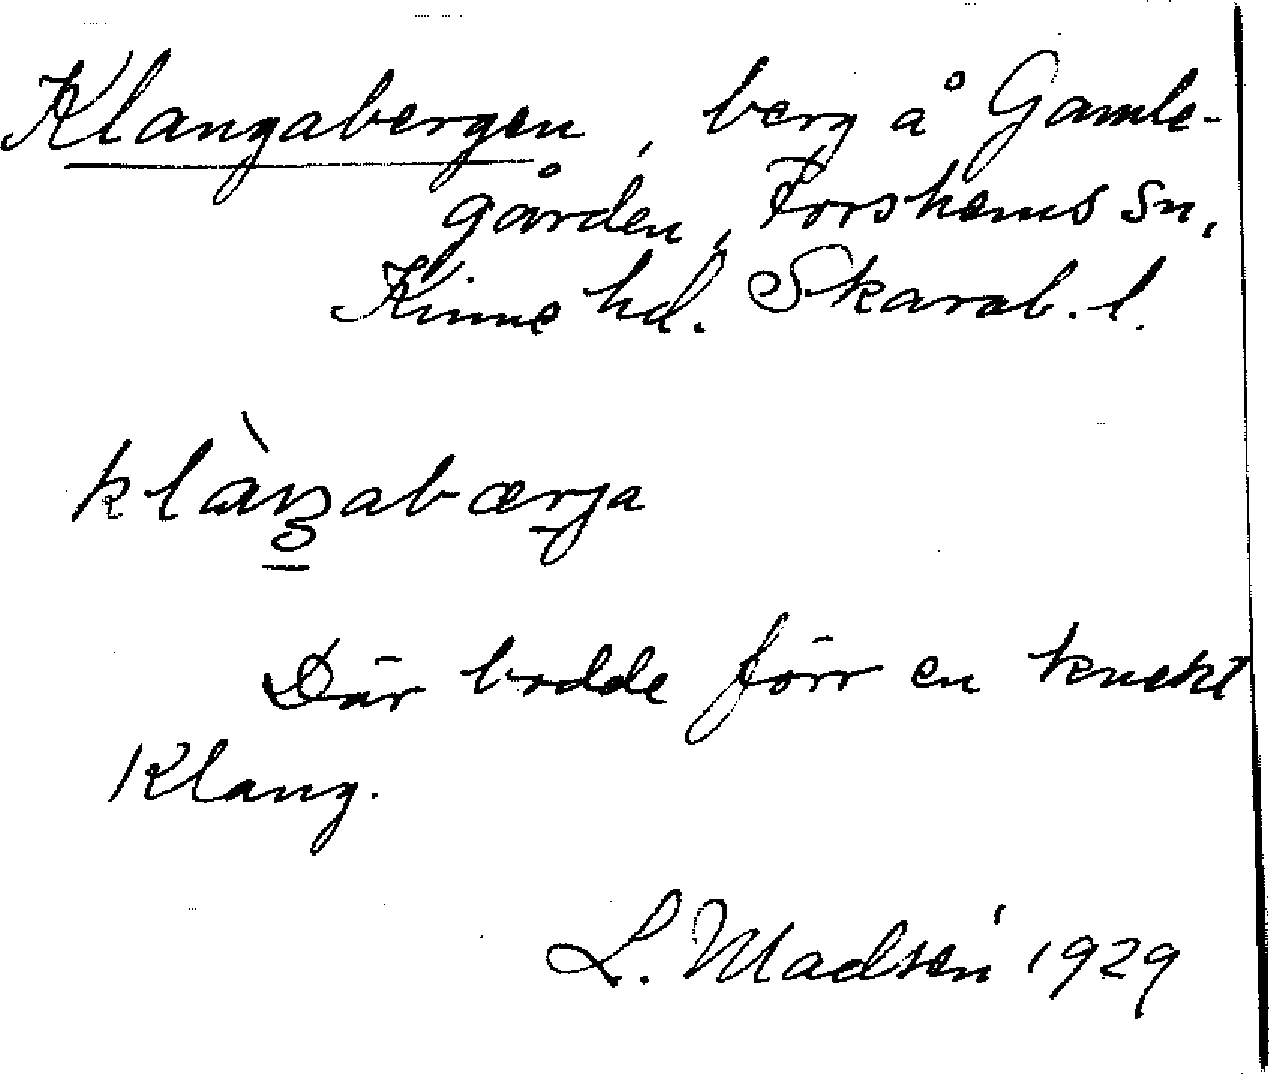 Klangabergen, berg å Gamle-
gården, Forshems sn,
Kinne hd. Skarab. l.
klàŋabærja
Där bodde förr en knekt
Klang.
L. Madsén 1929